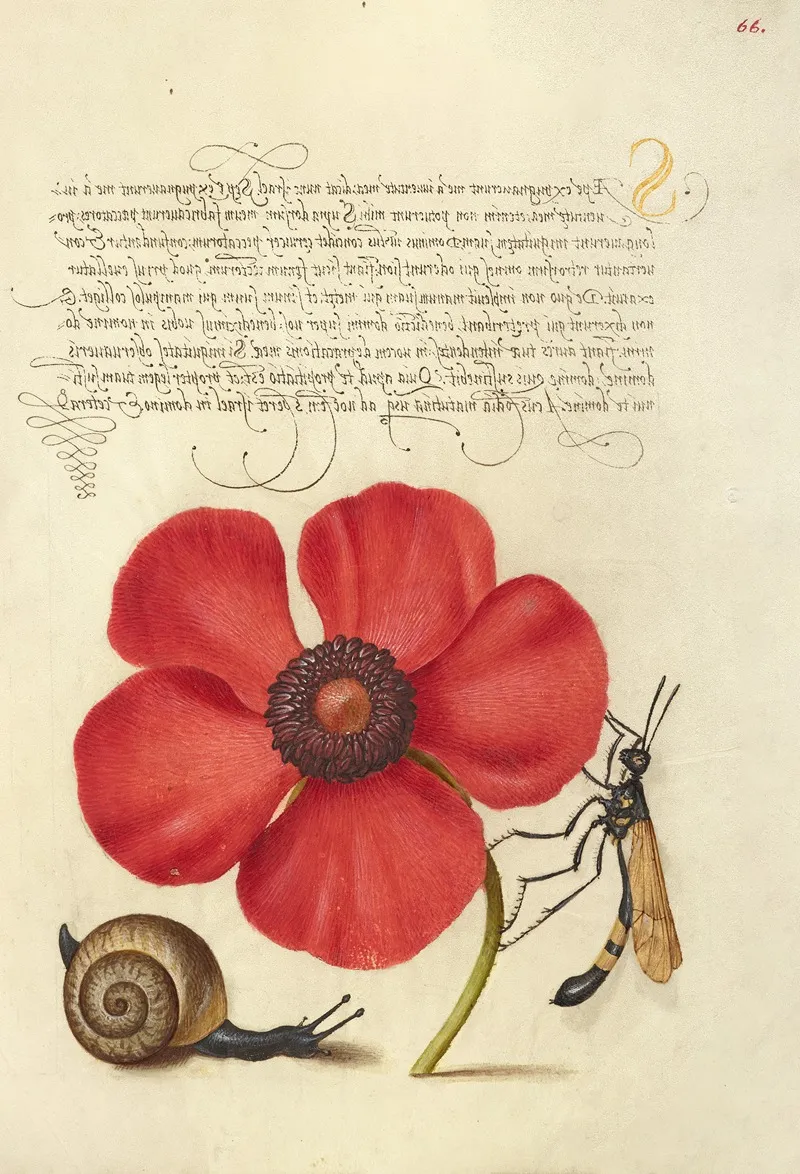 66.
SÆpe expugnauerunt me à iuuentute mea: dicat nunc Israel. Sepe expugnauerunt me à iu=
uentute mea: etenim non potuerunt mihi. Supra dorsum meum fabricauerunt peccatores: pro=
longauerunt iniquitatem suam. Dominus iustus concidet ceruices peccatorum: confundantur & con
uertantur retrorsum omnes qui oderunt sion. Fiant sicut fenum tectorum: quod priusq euellatur
exaruit. De quo non impleuit manum suam qui metit: et sinum suum qui manipulos colliget. Et
non dixerunt qui preteribant, benedictio domini super vos: benediximus vobis in nomine do=
mini. Fiant aures tuæ intendentes: in vocem deprecationis meæ. Si iniquitates obseruaueris
domine: domine quis sustinebit. Quia apud te propitiatio est: et propter legem tuam susti=
nui te domine. A custodia matutina usq ad noctem speret Israel in domino & cetera